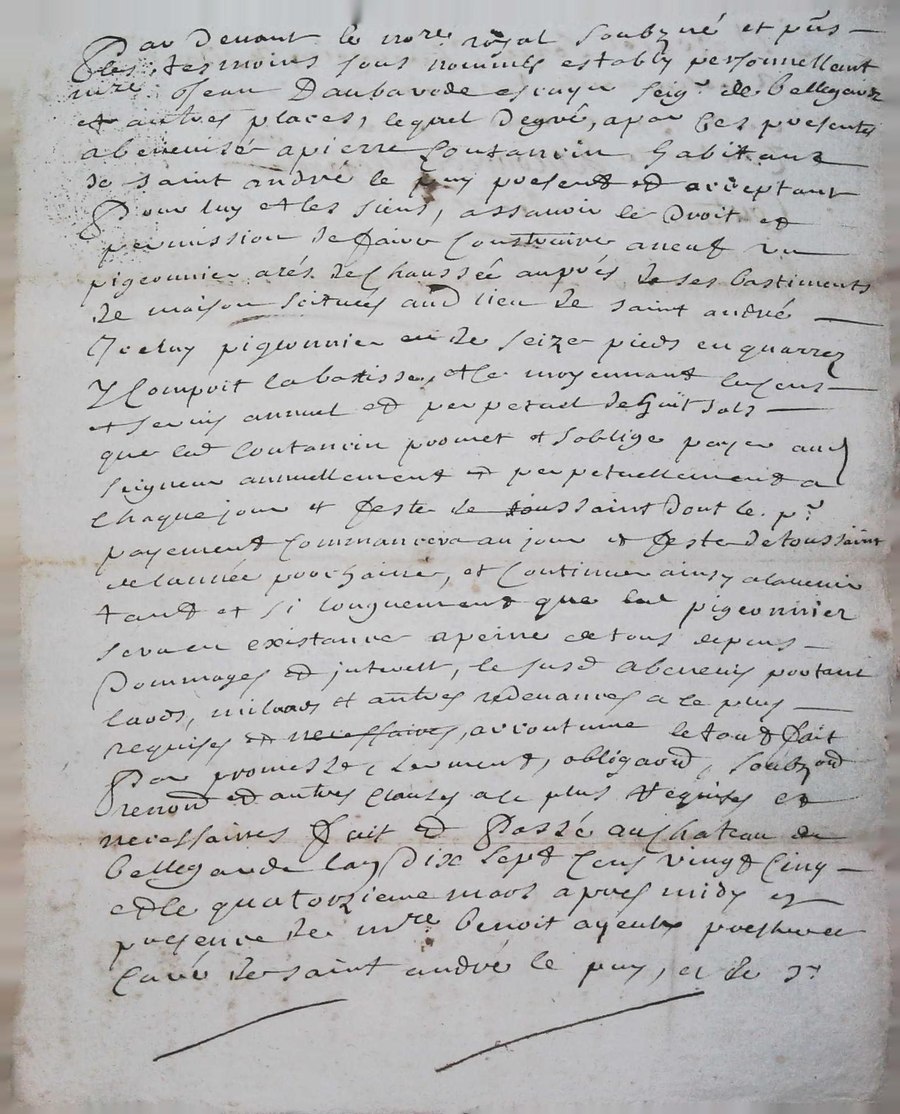 Par Devant le no.re royal soubzné et p̃ns
Les tesmoins sous nommés estably personellemt
m.re Jean Daubarede escuyer seig.r de bellegarde
et autres places, lequel degré, a par ces presentes
abenevisé a pierre Coutancin habitant
de saint andré le puy present et acceptant
Pour luy et les siens, assavoir le Droit et
permission de faire Construire aneuf un
pigeonnier a rés de Chaussée auprés de ses bastiments
de maison scitues aud lieu de saint andré
Iceluy pigeonnier de seize pieds en quarrez
y Compoit la batisse, et ce moyennant le cens
et servis annuel et perpetuel de huit sols
que led Coutancin promet et soblige payer aud
seigneur annuellement et perpetuellement a
Chaque jour et feste de toussaint Dont le p.r
payement Commancera au jour et feste de toussaint
de lannée prochaine, et Continuer ainsy a lavenir
tant et si longuement que led pigeonnier
sera en existance a peine de tous depens
Dommages et interest, le susd abenevis portant
laods, milaods et autres redevances a ce plus
requises et necessaires, accoutumé le tout fait
Par promesse, serment, obligaõn, soubzõn
renonõn et autres clauses a ce plus requises et
necessaires fait et Passé au Chateau de
bellegarde lan Dix sept Cens vingt Cinq
et le quatorzieme mars apres midy en
presence de m.re benoit prestre et
Curé de saint andré le puy, et de s.r